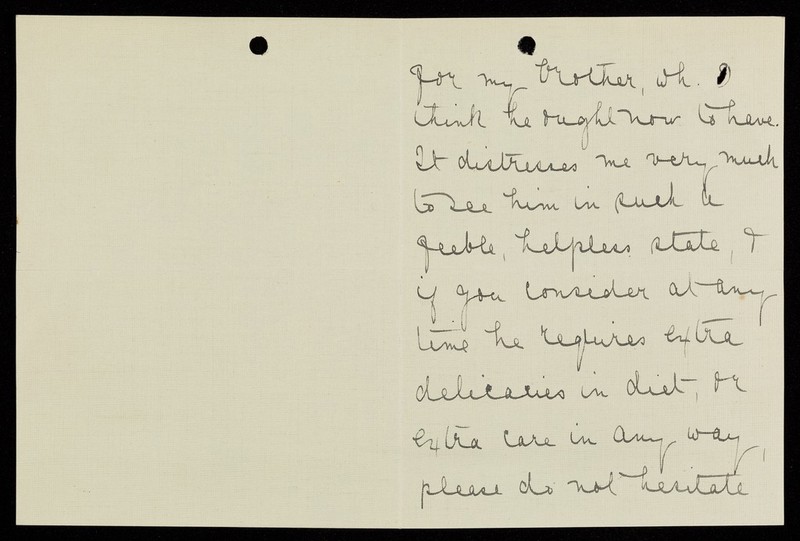 for my brother, wh. I
think he ought now to have.
It distresses me very much
to see him in such a
feeble, helpless state, &
if you consider at any
time he requires extra
delicacies in diet, or
extra care in any way,
please do not hesitate